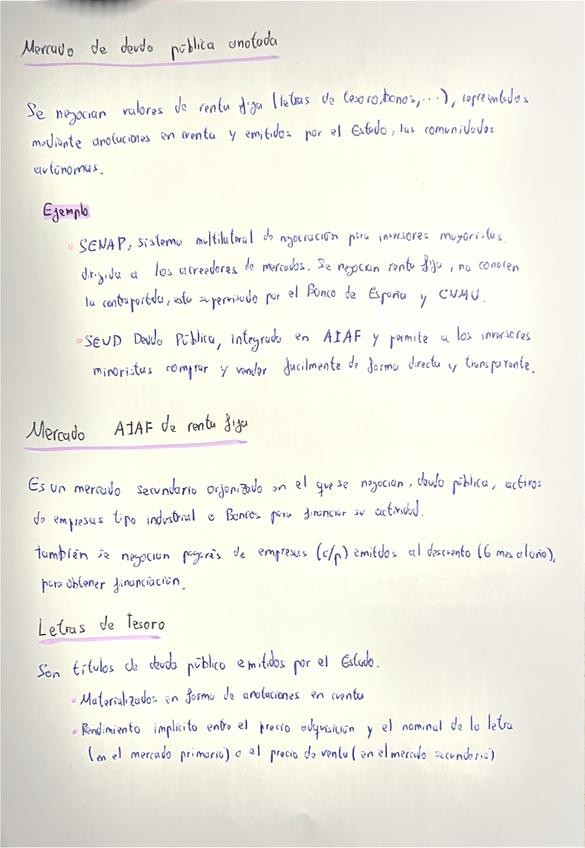 Mercado de deuda pública anotada
Se negocian valores de renta fija (letras de tesoro, bonos, ...), representados
mediante anotaciones en cuenta y emitidos por el Estado, las comunidades
autónomas.
Ejemplo
SENAP, sistema multilateral de negociación para inversores mayoristas.
dirigida a los acreedores de mercados. Se negocian renta fija, no conocen
la contrapartida, esta supervisado por el Banco de España y CNMV.
SEND Deuda Pública, integrado en AIAF y permite a los inversores
minoristas comprar y vender facilmente de forma directa y transparente.
Mercado AIAF de renta fija
Es un mercado secundario organizado en el que se negocian, deuda pública, activos
de empresas tipo industrial o Bancos para financiar su actividad.
también se negocian pagarés de empresas (c/p) emitidos al descuento (6 mes al año),
para obtener financiación.
Letras de Tesoro
Son títulos de deuda público emitidos por el Estado.
Materializados en forma de anotaciones en cuenta
Rendimiento implicito entre el precio adquisición y el nominal de la letra
(en el mercado primario) o el precio de venta (en el mercado secundario)